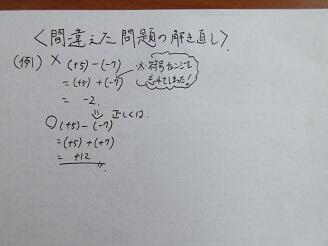 <間違えた問題の解き直し>
(例) × (+5)-(-7)
=(+5)+(-7)
= -2
※符号チェンジて
忘れてしまった!
⇓ 正しくは
○(+5)-(-7)
=(+5)+(+7)
= +12